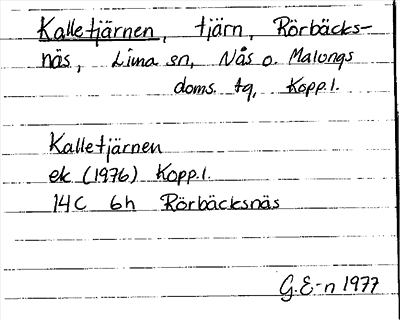 Kalletjärnen, tjärn, Rörbäcks-
näs, Lima sn, Nås o. Malungs
doms. tg, Kopp.l.
Kalletjärnen
ek (1976) Kopp.l.
14C 6h Rörbäcksnäs
G.E-n 1977